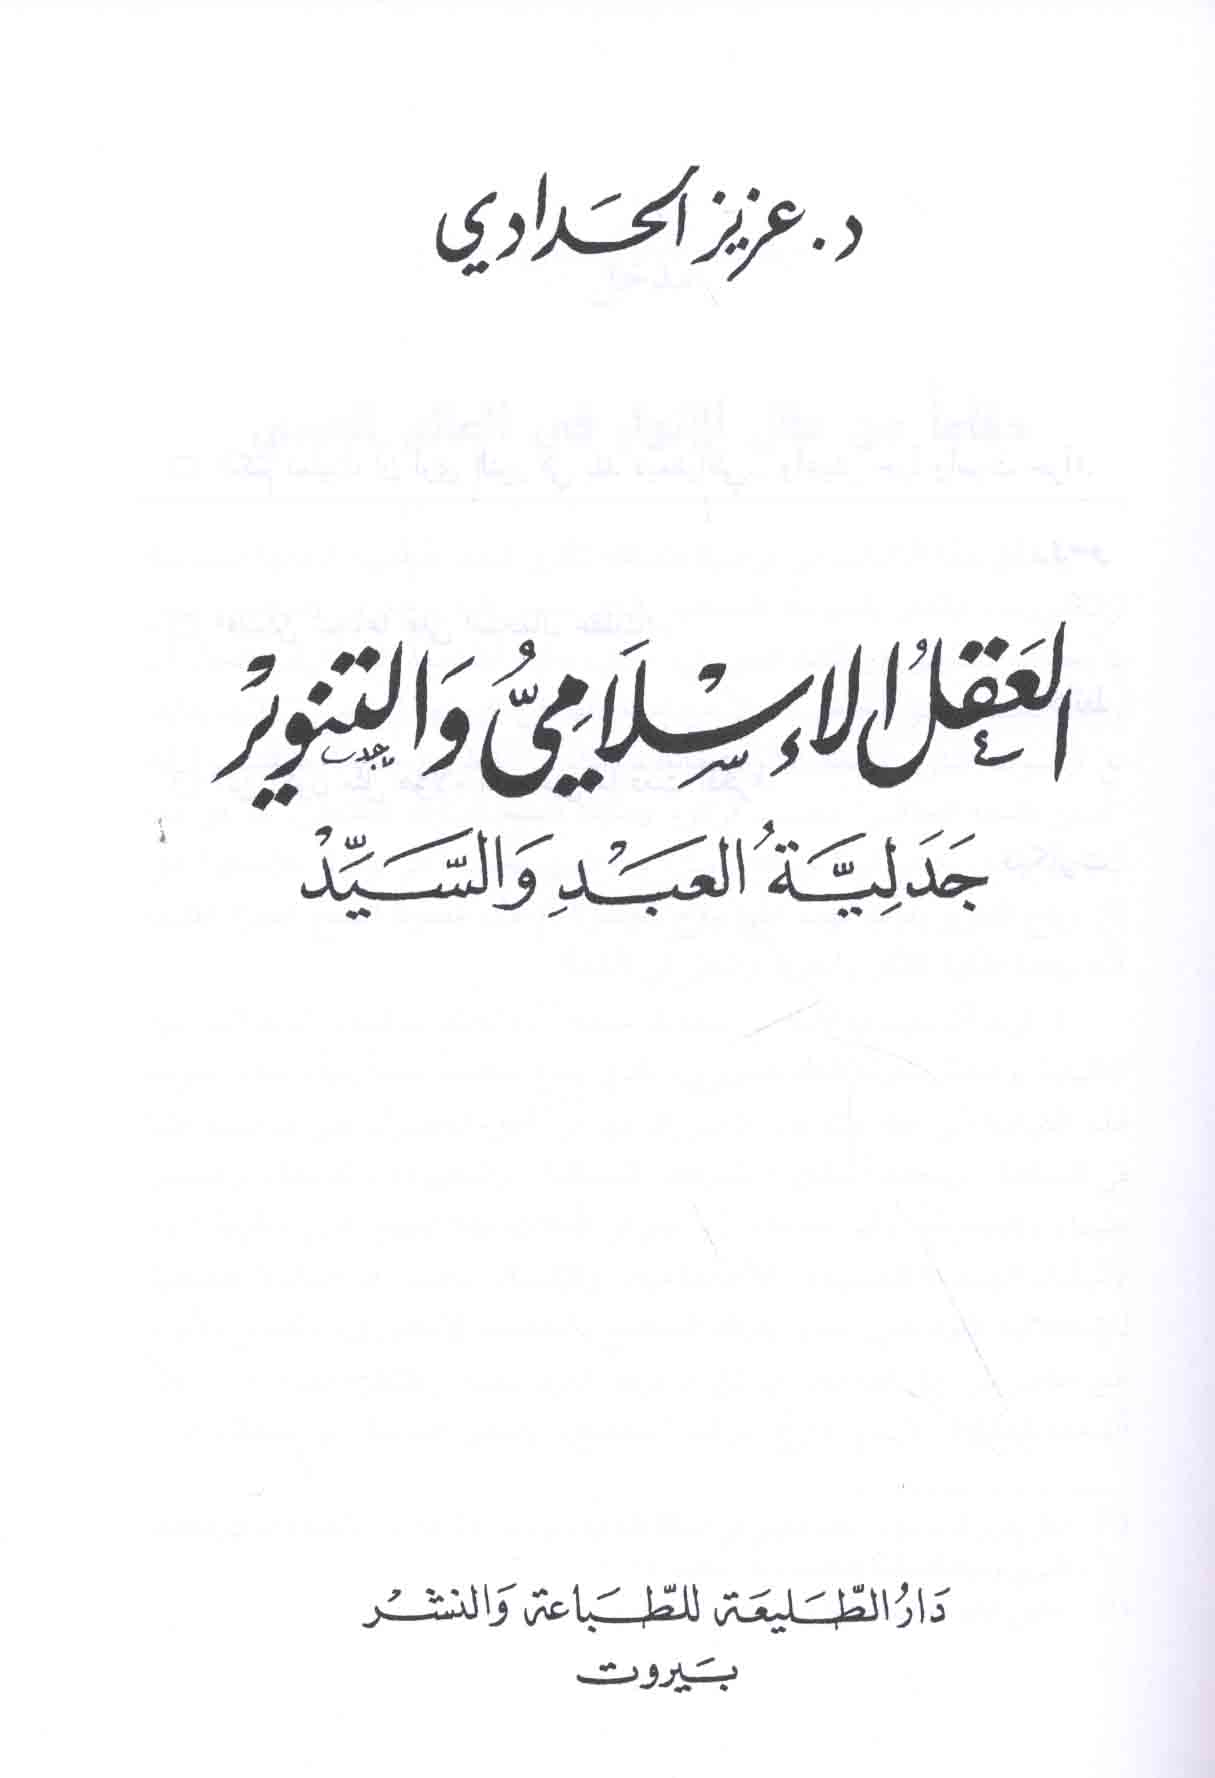 د. عزيز الحَدادي
العَقلُ الإسْلَامِيُّ وَالتنويرْ
جَدَلِيَّةُ العَبْدِ وَالسَّيِّدْ
دَارُ الطَّلِيعَة للطِّبَاعَة وَالنشْرْ
بَيروت